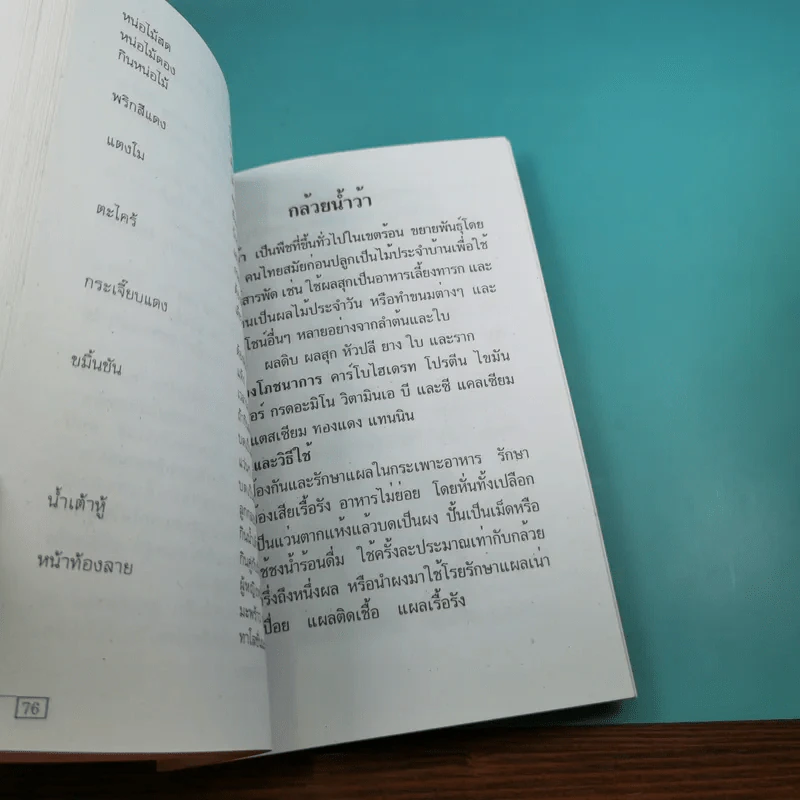 หน่อไม้สด
หน่อไม้ดอง
กินหน่อไม้
พริกสีแดง
แตงโม
ตะไคร้
กระเจี๊ยบแดง
ขมิ้นชัน
น้ำเต้าหู้
หน้าท้องลาย
76
กล้วยน้ำว้า
เป็นพืชที่ขึ้นทั่วไปในเขตร้อน ขยายพันธุ์โดย
คนไทยสมัยก่อนปลูกเป็นไม้ประจำบ้านเพื่อใช้
สารพัด เช่น ใช้ผลสุกเป็นอาหารเลี้ยงทารก และ
เป็นผลไม้ประจำวัน หรือทำขนมต่างๆ และ
โยชน์อื่นๆ หลายอย่างจากลำต้นและใบ
ผลดิบ ผลสุก หัวปลี ยาง ใบ และราก
งโภชนาการ คาร์โบไฮเดรท โปรตีน ไขมัน
อร์ กรดอะมิโน วิตามินเอ บี และซี แคลเซียม
แตสเซียม ทองแดง แทนนิน
และวิธีใช้
องกันและรักษาแผลในกระเพาะอาหาร รักษา
องเสียเรื้อรัง อาหารไม่ย่อย โดยหั่นทั้งเปลือก
เป็นแว่นตากแห้งแล้วบดเป็นผง ปั้นเป็นเม็ดหรือ
ช้ชงน้ำร้อนดื่ม ใช้ครั้งละประมาณเท่ากับกล้วย
รึ่งถึงหนึ่งผล หรือนำผงมาใช้โรยรักษาแผลเน่า
ปื่อย แผลติดเชื้อ แผลเรื้อรัง